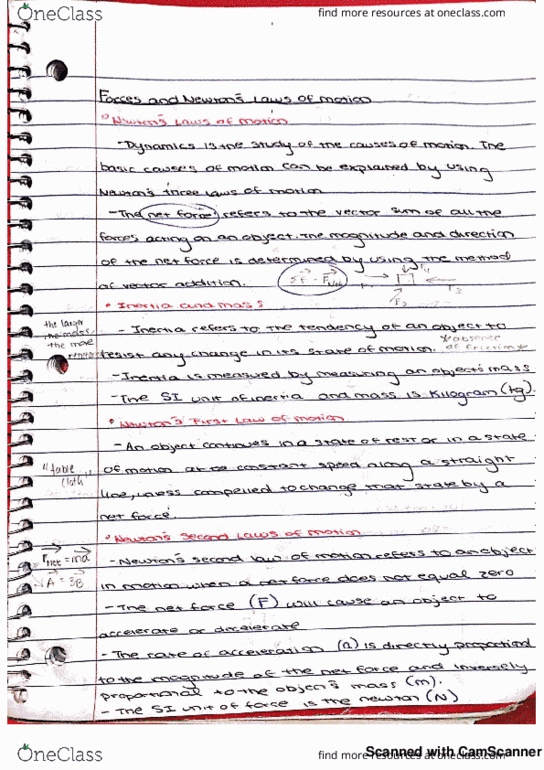 OneClass
find more resources at oneclass.com
Forces and Newton's Laws of motion
• Newton's Laws of motion
- Dynamics is the study of the causes of motion. The
basic causes of motion can be explained by using
Newton's three laws of motion
- The net force refers to the vector sum of all the
forces acting on an object. The magnitude and direction
of the net force is determined by using the method
of vector addition.
• Inertia and mass
the larger
the mass,
the more
- Inertia refers to the tendency of an object to
resist any change in its state of motion. *absence of friction*
- Inertia is measured by measuring an object's mass
- The SI unit of inertia and mass is Kilogram (kg).
• Newton's First Law of motion
- An object continues in a state of rest or in a state
"table cloth"
of motion at a constant speed along a straight
line, unless compelled to change that state by a
net force.
• Newton's Second Laws of motion
Fnet = ma
- Newton's second law of motion refers to an object
A = 3B
in motion when a net force does not equal zero
- The net force (F) will cause an object to
accelerate or decelerate
- The rate of acceleration (a) is directly proportional
to the magnitude of the net force and inversely
proportional to the object's mass (m).
- The SI unit of force is the newton (N)
OneClass
find more resources at oneclass.com
Scanned with CamScanner